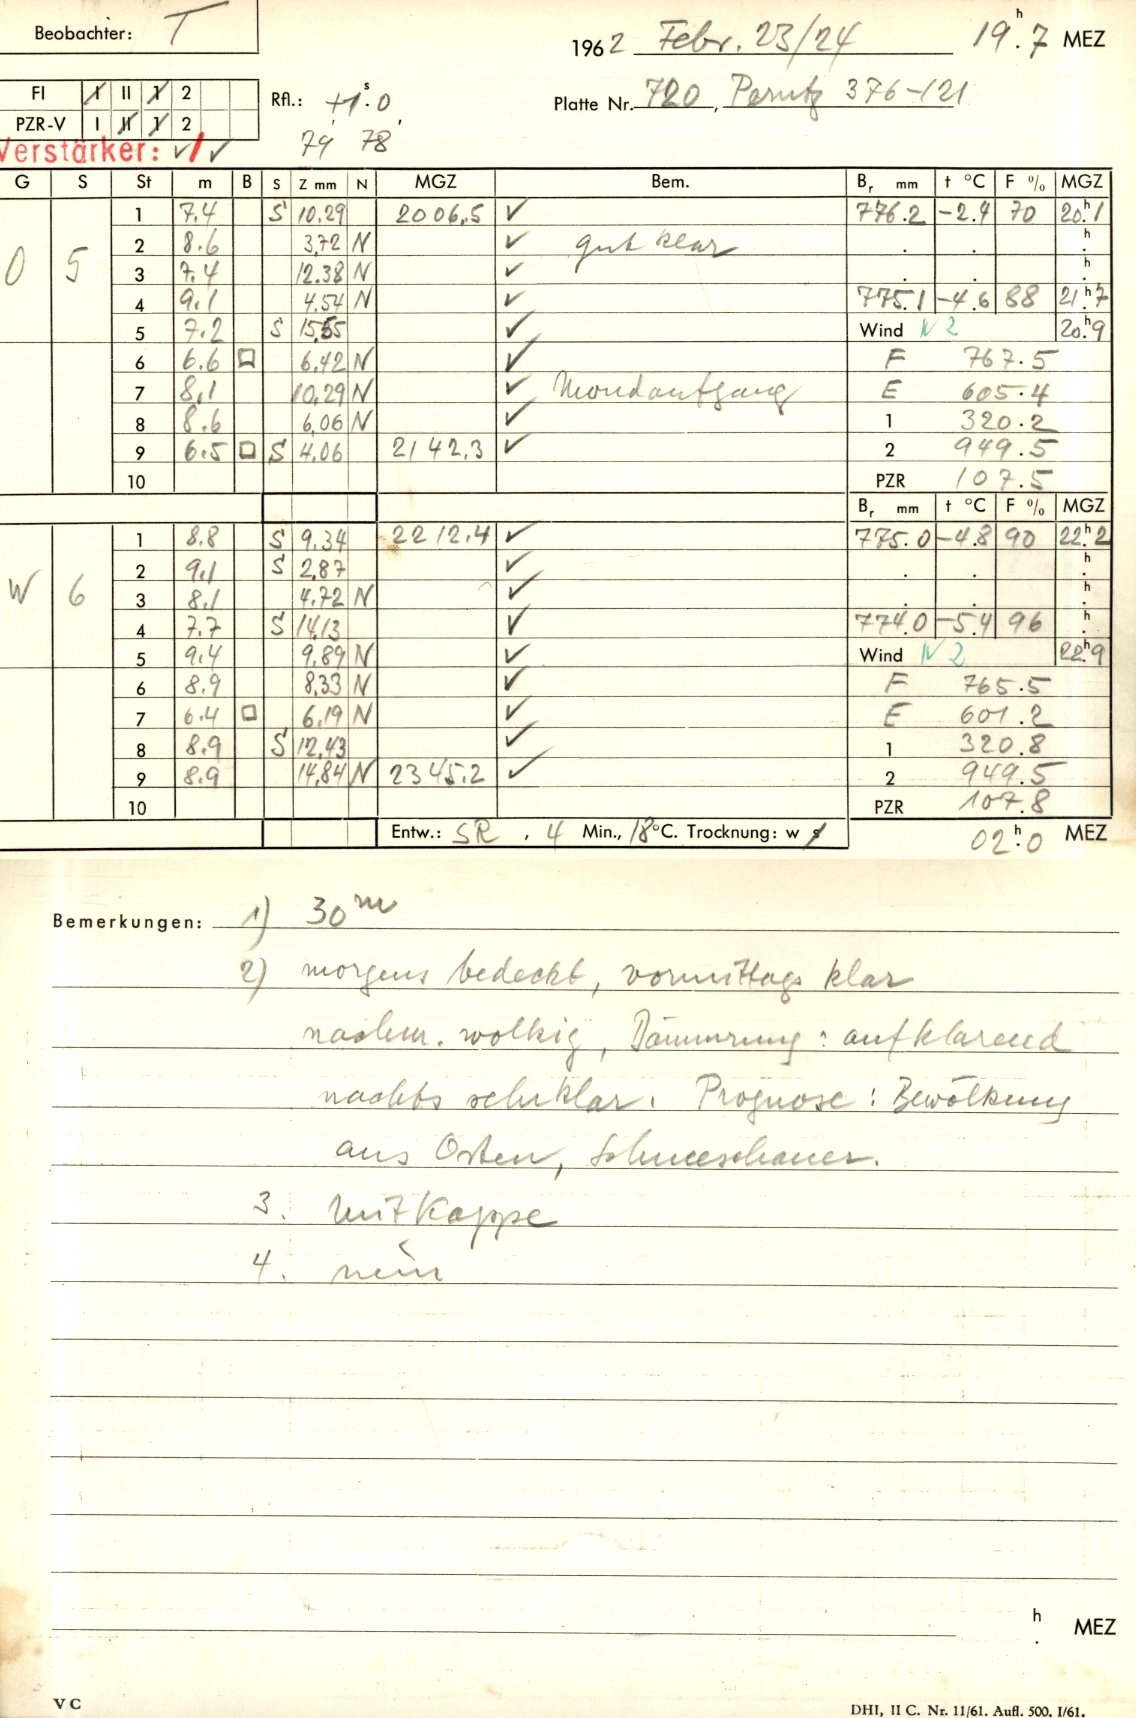 Beobachter: T
1962 Febr. 23/24 19h.7 MEZ
FI I II 1 2
Rfl.: +1s.0
Platte Nr. 720, Perutz 376-121
PZR-V I II 1 2
Verstärker: ✓/✓
79 78
G S St m B S Z mm N MGZ Bem. Br mm t °C F % MGZ
1 7.4 S 10,29 2006,5 ✓ 776.2 -2.4 70 20h.1
2 8.6 3,72 N ✓ gut klar . . h.
O 5 3 7.4 12.38 N ✓ . . h.
4 9.1 4.54 N ✓ 775.1 -4.6 88 21h.7
5 7.2 S 15,55 ✓ Wind N 2 20h.9
6 6.6 □ 6.42 N ✓ F 767.5
7 8.1 10,29 N ✓ Mondaufgang E 605.4
8 8.6 6,06 N ✓ 1 320.2
9 6.5 □ S 4,06 2142,3 ✓ 2 949.5
10 PZR 107.5
Br mm t °C F % MGZ
1 8.8 S 9,34 2212.4 ✓ 775.0 -4.8 90 22h.2
2 9.1 S 2,87 ✓ . . h.
W 6 3 8.1 4.72 N ✓ . . h.
4 7.7 S 14,13 ✓ 774.0 -5.4 96 h.
5 9.4 9,89 N ✓ Wind N 2 22h.9
6 8.9 8,33 N ✓ F 765.5
7 6.4 □ 6,19 N ✓ E 601.2
8 8.9 S 12,43 ✓ 1 320.8
9 8.9 14,84 N 2345.2 ✓ 2 949.5
10 PZR 107.8
Entw.: SR . 4 Min., 18°C. Trocknung: w s 02h.0 MEZ
Bemerkungen: 1) 30m
2) morgens bedeckt, vormittags klar
nachm. wolkig, Dämmrung: aufklarend
nachts sehr klar. Prognose: Bewölkung
aus Osten, Schneeschauer.
3. mit Kappe
4. nein
h. MEZ
V C
DHI, II C. Nr. 11/61. Aufl. 500. I/61.